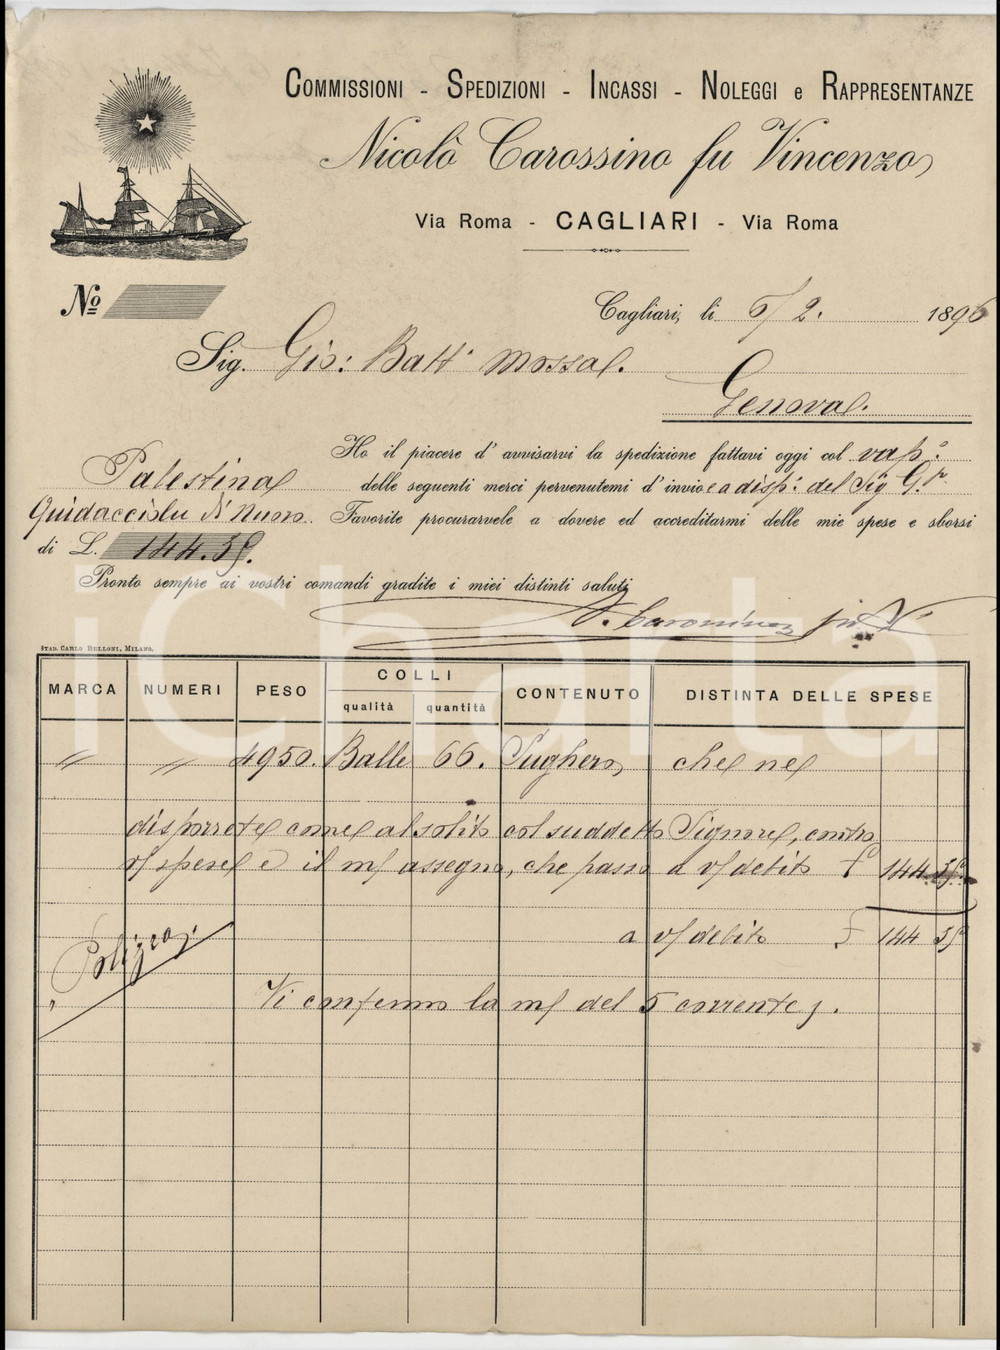 COMMISSIONI - SPEDIZIONI - INCASSI - NOLEGGI e RAPPRESENTANZE
Nicolò Carossino fu Vincenzo
Via Roma - CAGLIARI - Via Roma
No
Cagliari, li 6/2. 1896
Sig. Gio: Batta Mossa.
Genova.
Ho il piacere d' avvisarvi la spedizione fattavi oggi col vap.e
Palestina delle seguenti merci pervenutemi d'invio e a disp.e del Sig G.r
di Nuoro. Favorite procurarvele a dovere ed accreditarmi delle mie spese e sborsi
di L. 144.35.
Pronto sempre ai vostri comandi gradite i miei distinti saluti
STAB. CARLO BELLONI, MILANO.
MARCA NUMERI PESO COLLI qualità quantità CONTENUTO DISTINTA DELLE SPESE
" " 4950. Balle 66. Sughero, che ne
disporrete come al solito col suddetto Signore, contro
v/ spese e il m/ assegno, che passo a v/ debito £ 144.35.
a v/ debito £ 144 35
Polizza
Vi confermo la m/ del 5 corrente,.
iCharta